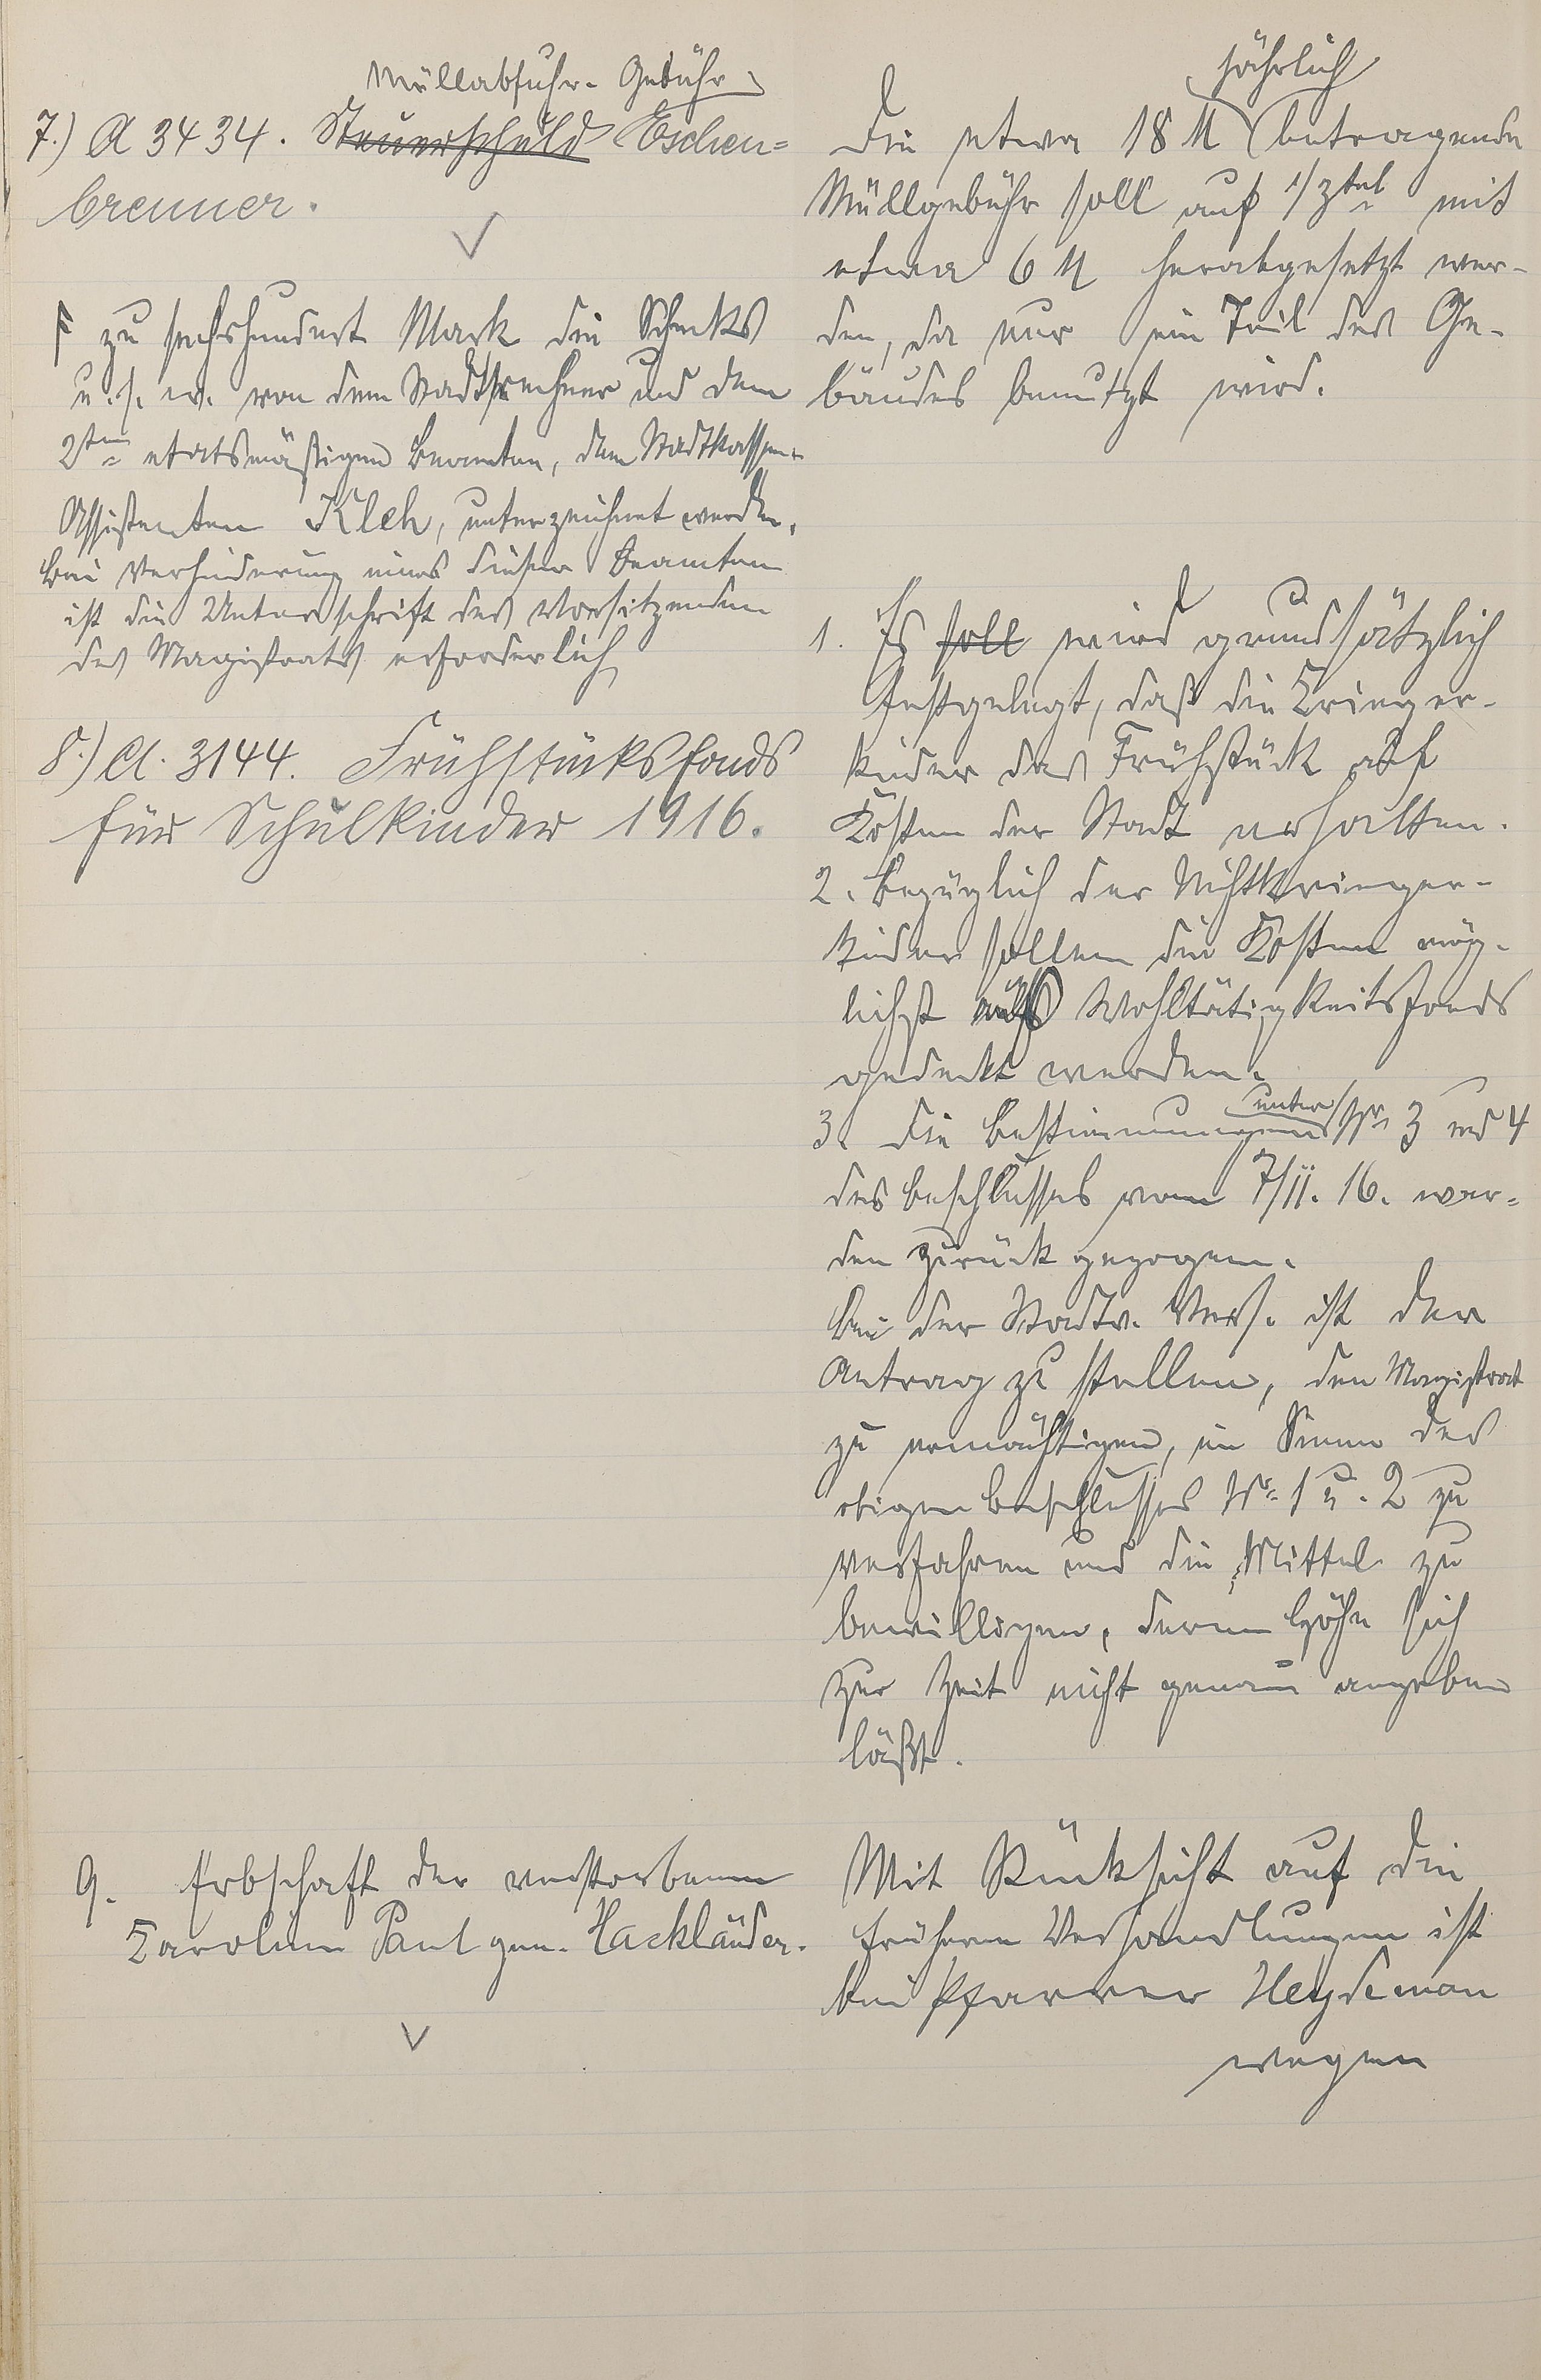 Müllabfuhr-Gebühr
7.) A 3434. Steuerschuld Eschen=
brenner.
F zu sechshundert Mark die Schecks
u. s. w. von dem Stadtrechner und dem
2ten etatsmäßigen Beamten, dem Stadtkassen-
Assistenten Kleh, unterzeichnet werden.
Bei Verhinderung eines dieser Beamten
ist die Unterschrift des Vorsitzenden
des Magistrats erforderlich
8.) A. 3144. Frühstücksfonds
für Schulkinder 1916.
9. Erbschaft der verstorbenen
Karoline Paul gen. Hackländer.
jährlich
Die etwa 18 M betragende
Müllgebühr soll auf 1/3tel mit
etwa 6 M herabgesetzt wer-
den, da nur ein Teil des Ge-
bäudes benutzt wird.
1. Es soll wird grundsätzlich
festgelegt, daß die Krieger-
kinder das Frühstück auf
Kosten der Stadt erhalten.
2. Bezüglich der Nichtkrieger-
kinder sollen die Kosten mög-
lichst aus Wohltätigkeitsfonds
gedeckt werden.
unter
3. Die Bestimmungen Nr. 3 und 4
des Beschlusses vom 7/II. 16. wer=
den zurückgezogen.
Bei der Stadtv. Vers. ist der
Antrag zu stellen, den Magistrat
zu ermächtigen, im Sinne des
obigen Beschlusses Nr. 1 u. 2 zu
verfahren und die Mittel zu
bewilligen, deren Höhe sich
zur Zeit nicht genau angeben
läßt.
Mit Rücksicht auf die
früheren Verhandlungen ist
bei Pfarrer Heydeman
wegen